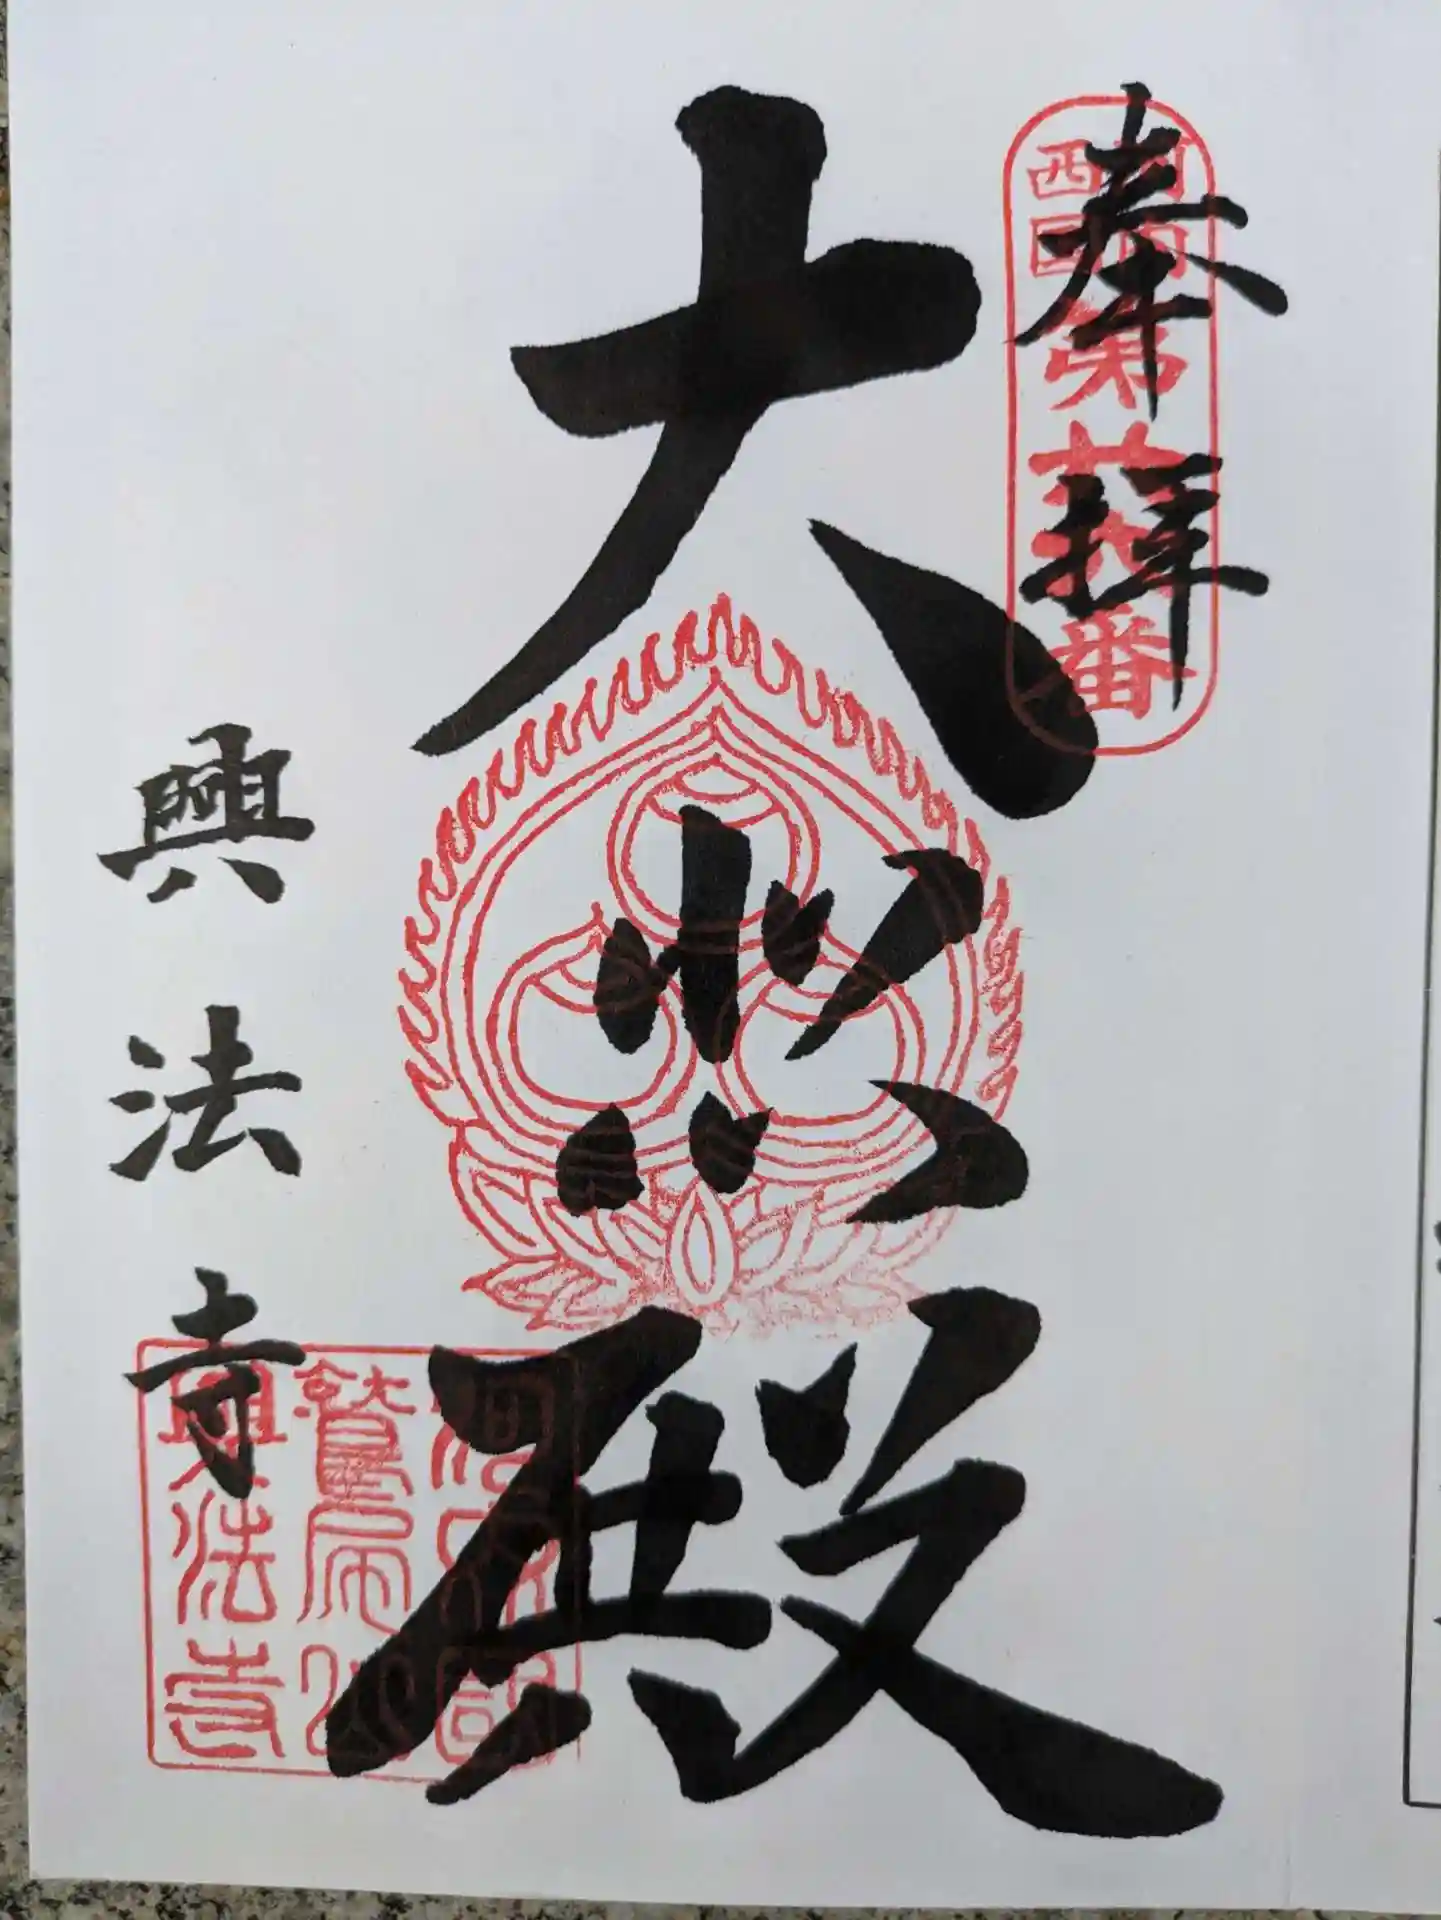 奉拝
西国
第 番
大悲殿
興法寺
鷲尾山
興法寺